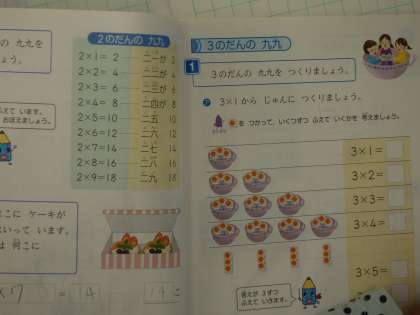 の 九九を
しょう。
ふえて います。
おぼえましょう。
2のだんの 九九
2×1= 2 二一が 2
2×2= 4 二二が 4
2×3= 6 二三が 6
2×4= 8 二四が 8
2×5=10 二五 10
2×6=12 二六 12
2×7=14 二七 14
2×8=16 二八 16
2×9=18 二九 18
こに ケーキが
いって います。
は 何こに
=14
14こ
3のだんの 九九
1
3のだんの 九九を つくりましょう。
ア 3×1から じゅんに つくりましょう。
を つかって、いくつずつ ふえて いくかを 答えましょう。
3×1=
3×2=
3×3=
3×4=
3×5=
答えが 3ずつ
ふえて いきます。